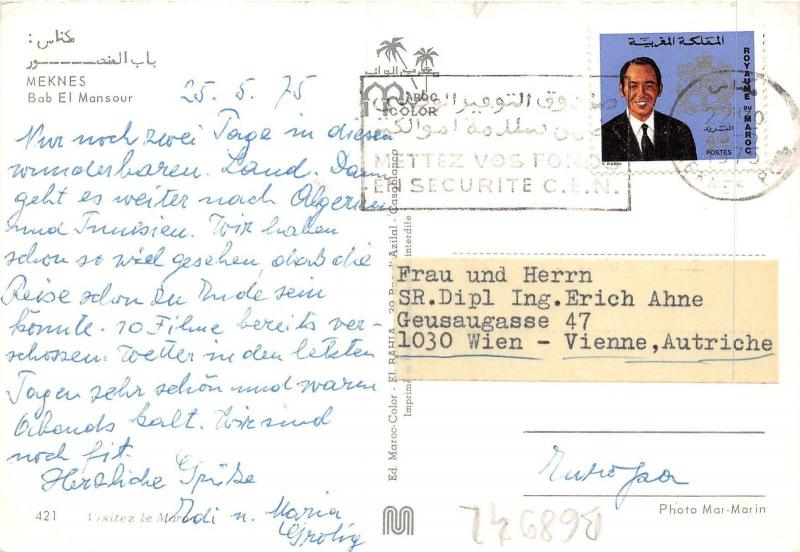 مكناس :
باب المنصــــــور
MEKNES
Bab El Mansour
25. 5. 75
Nur noch zwei Tage in diesem
wunderbaren Land. Dann
geht es weiter nach Algerien
und Tunisien. Wir haben
schon so viel gesehen, daß die
Reise schon zu Ende sein
könnte. 10 Filme bereits ver-
schossen. Wetter in den letzten
Tagen sehr schön und warm
Abends kalt. Wir sind
noch fit.
Herzliche Grüße
Edi u. Maria
421
Visitez le Maroc
MAROC
COLOR
صندوق التوفير الوطني
METTEZ VOS FONDS
EN SECURITE C.E.N.
المملكة المغربية
ROYAUME DU MAROC
البريد
POSTES
Ed. Maroc-Color - EL BAHIA - Azilal - Casablanca
Imprimé interdite
Frau und Herrn
SR.Dipl Ing.Erich Ahne
Geusaugasse 47
1030 Wien - Vienne,Autriche
Europa
Photo Mar-Marin